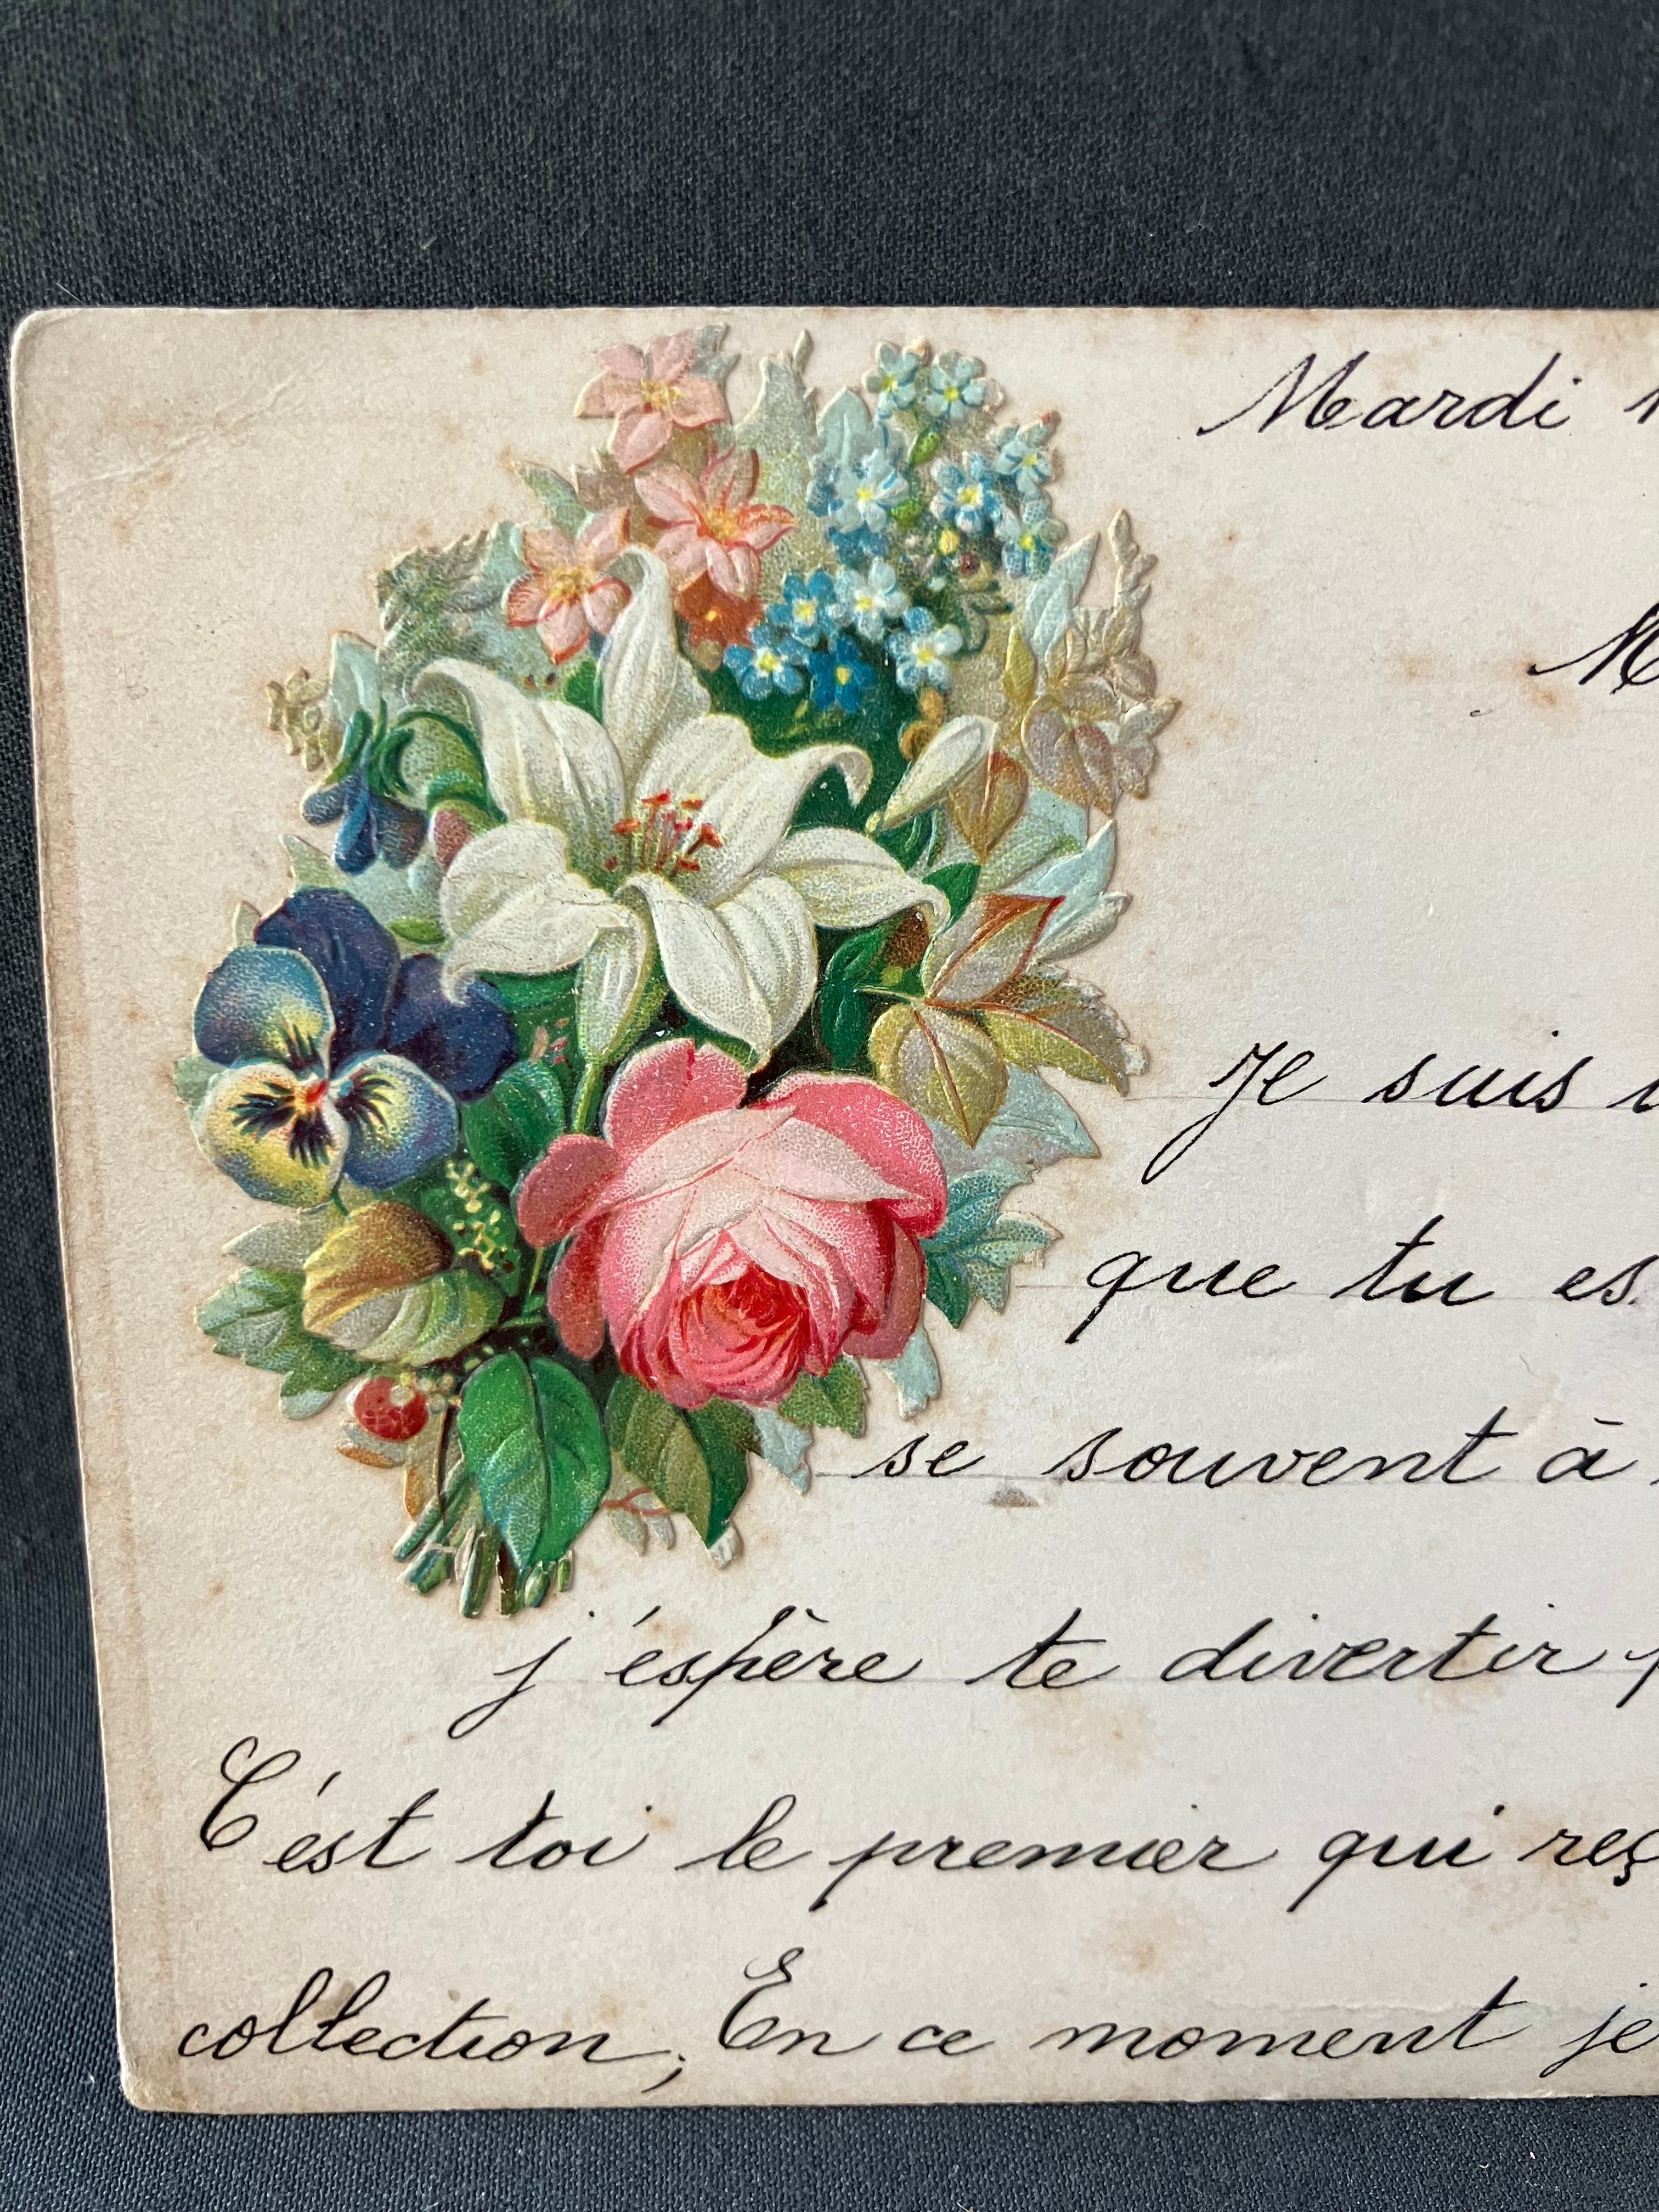 Mardi
Je suis
que tu es
se souvent à
j'espère te divertir
C'est toi le premier qui
collection, En ce moment je